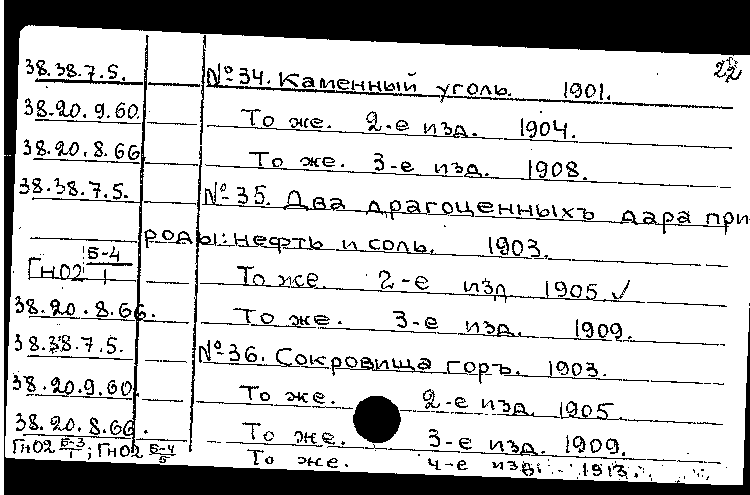 22
38.38.7.5. №34. Каменный уголь. 1901.
38.20.9.60. То же. 2-е изд. 1904.
38.20.8.66 То же. 3-е изд. 1908.
38.38.7.5. №35. Два драгоценныхъ дара при
роды: нефть и соль. 1903.
ГнО2 Б-4/1 То же. 2-е изд 1905 ✓
38.20.8.66. То же. 3-е изд. 1909.
38.38.7.5. №36. Сокровища горъ. 1903.
38.20.9.60. То же. 2-е изд. 1905.
38.20.8.66. То же. 3-е изд. 1909.
ГнО2 Б-3/1; ГнО2 Б-4/5 То же. 4-е изд. 1913.